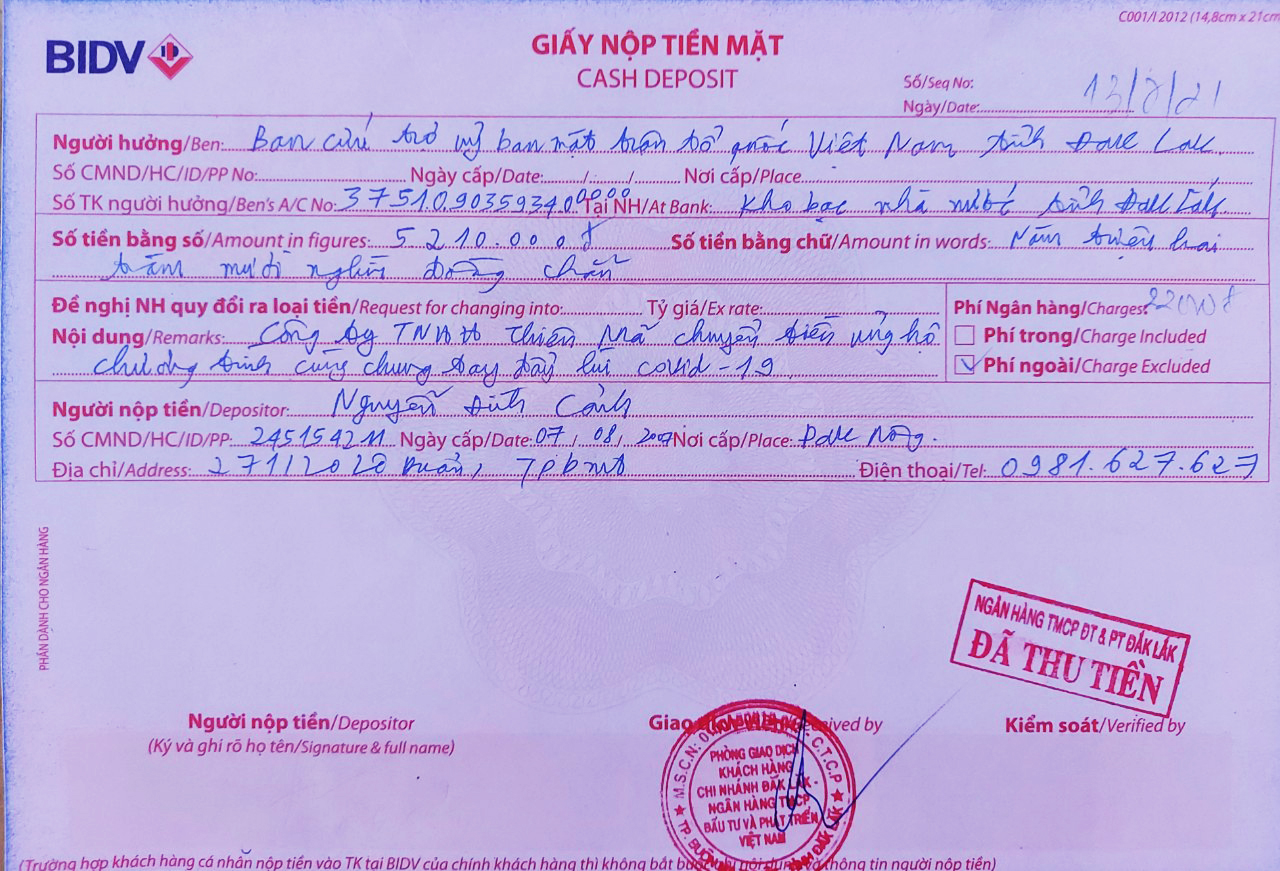 C001/I 2012 (14,8cm x 21cm
BIDV
GIẤY NỘP TIỀN MẶT
CASH DEPOSIT
Số/Seq No:
Ngày/Date: 13/8/21
Người hưởng/Ben: Ban cứu trợ uỷ ban mặt trận tổ quốc Việt Nam tỉnh Đăk Lăk
Số CMND/HC/ID/PP No: Ngày cấp/Date: / / Nơi cấp/Place
Số TK người hưởng/Ben's A/C No: 3751.0.9035934.00000 Tại NH/At Bank: Kho bạc nhà nước tỉnh Đăk Lăk
Số tiền bằng số/Amount in figures: 5.210.000đ Số tiền bằng chữ/Amount in words: Năm triệu hai
trăm mười nghìn đồng chẵn
Đề nghị NH quy đổi ra loại tiền/Request for changing into: Tỷ giá/Ex rate: Phí Ngân hàng/Charges: 22000đ
Nội dung/Remarks: Công ty TNHH Thiên Mã chuyển tiền ủng hộ
Phí trong/Charge Included
chương trình cùng chung tay đẩy lùi covid-19
Phí ngoài/Charge Excluded
Người nộp tiền/Depositor: Nguyễn Đình Cảnh
Số CMND/HC/ID/PP: 245154211 Ngày cấp/Date: 07/08/2007 Nơi cấp/Place: Đăk Nông.
Địa chỉ/Address: Duẩn, TPbmt Điện thoại/Tel: 0981.627.627
PHẦN DÀNH CHO NGÂN HÀNG
NGÂN HÀNG TMCP ĐT & PT ĐẮK LẮK
ĐÃ THU TIỀN
Người nộp tiền/Depositor
(Ký và ghi rõ họ tên/Signature & full name)
Giao by
Kiểm soát/Verified by
M.S.C.N: C.T.C.P
PHÒNG GIAO DỊCH
KHÁCH HÀNG
CHI NHÁNH ĐẮK LẮK
NGÂN HÀNG TMCP
ĐẦU TƯ VÀ PHÁT TRIỂN
VIỆT NAM
(Trường hợp khách hàng cá nhân nộp tiền vào TK tại BIDV của chính khách hàng thì không bắt buộc nội dung thông tin người nộp tiền)